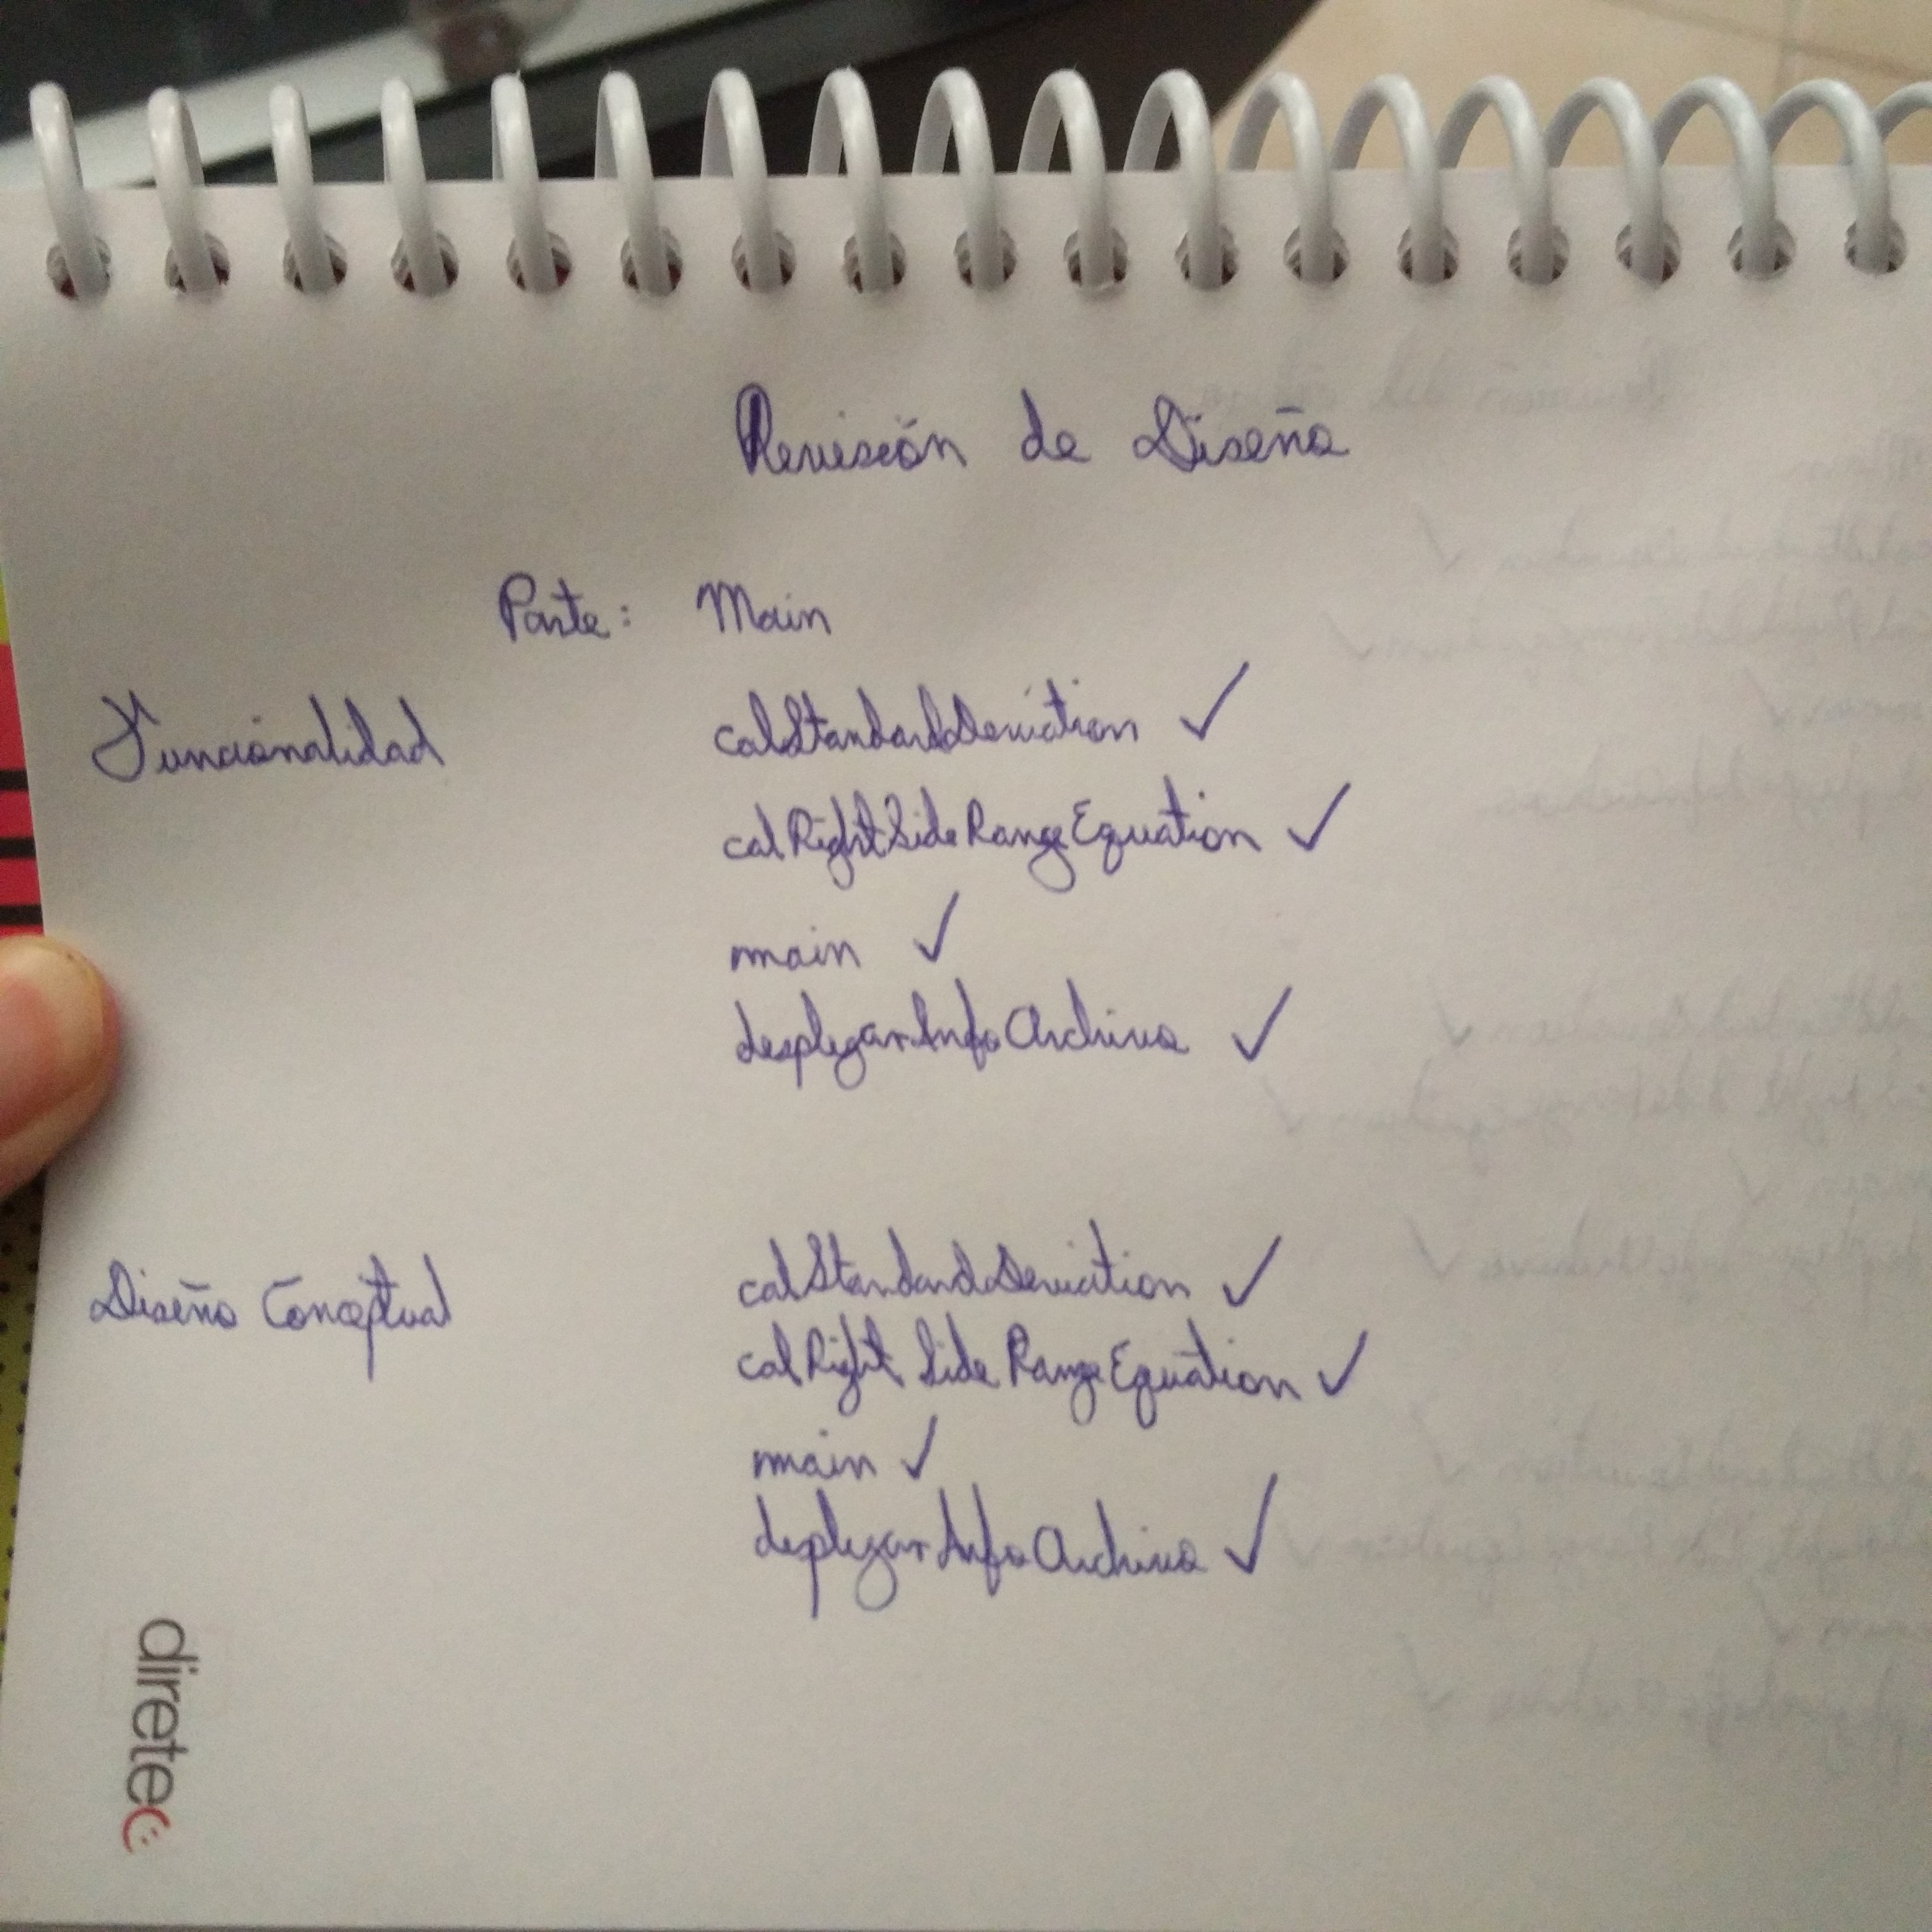 Revisión de Diseño
Parte: Main
Funcionalidad calStandardDeviation ✓
calRightSideRangeEquation ✓
main ✓
desplegarInfoArchivo ✓
Diseño Conceptual calStandardDeviation ✓
calRight Side RangeEquation ✓
main ✓
desplegarInfoArchivo ✓
diretec